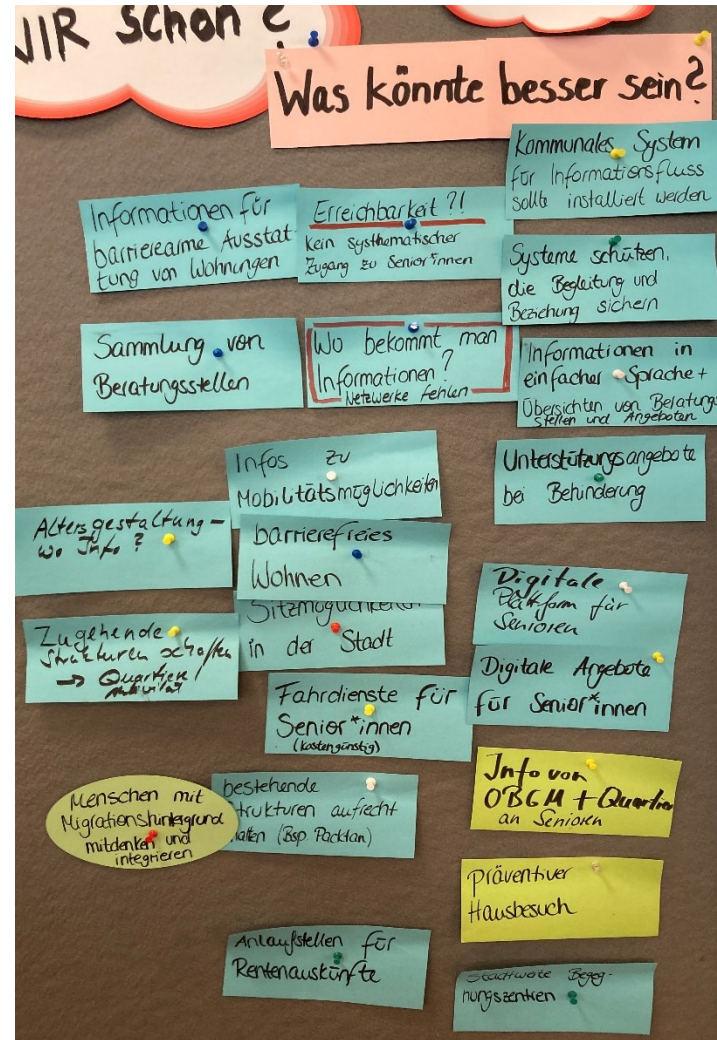 WIR schon ?
Was könnte besser sein?
Kommunales System
für Informationsfluss
sollte installiert werden
Informationen für
barrierearme Ausstat-
tung von Wohnungen
Erreichbarkeit ?!
Kein systhematischer
Zugang zu Senior*innen
Systeme schützen,
die Begleitung und
Beziehung sichern
Sammlung von
Beratungsstellen
Wo bekommt man
Informationen ?
Netzwerke fehlen
Informationen in
einfacher Sprache +
Übersichten von Beratungs
stellen und Angeboten
Infos zu
Mobilitätsmöglichkeiten
Unterstützungsangebote
bei Behinderung
Altersgestaltung –
wo Info ?
barrierefreies
Wohnen
Sitzmöglichkeiten
in der Stadt
Digitale
Plattform für
Senioren
Zugehende
Strukturen schaffen
→ Quartier /
Digitale Angebote
für Senior*innen
Fahrdienste für
Senior*innen
(kostengünstig)
Info von
OBGM + Quartier
an Senioren
Menschen mit
Migrationshintergrund
mitdenken und
integrieren
bestehende
Strukturen aufrecht
halten (Bsp. Packtan)
präventiver
Hausbesuch
Anlaufstellen für
Rentenauskünfte
Stadtweite Begeg-
nungszentren